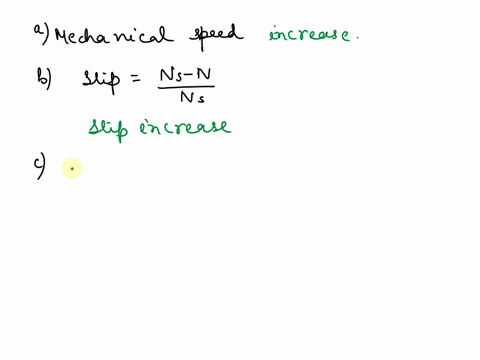 a) Mechanical speed increase.
b) Slip = Ns-N / Ns
Slip increase
c)